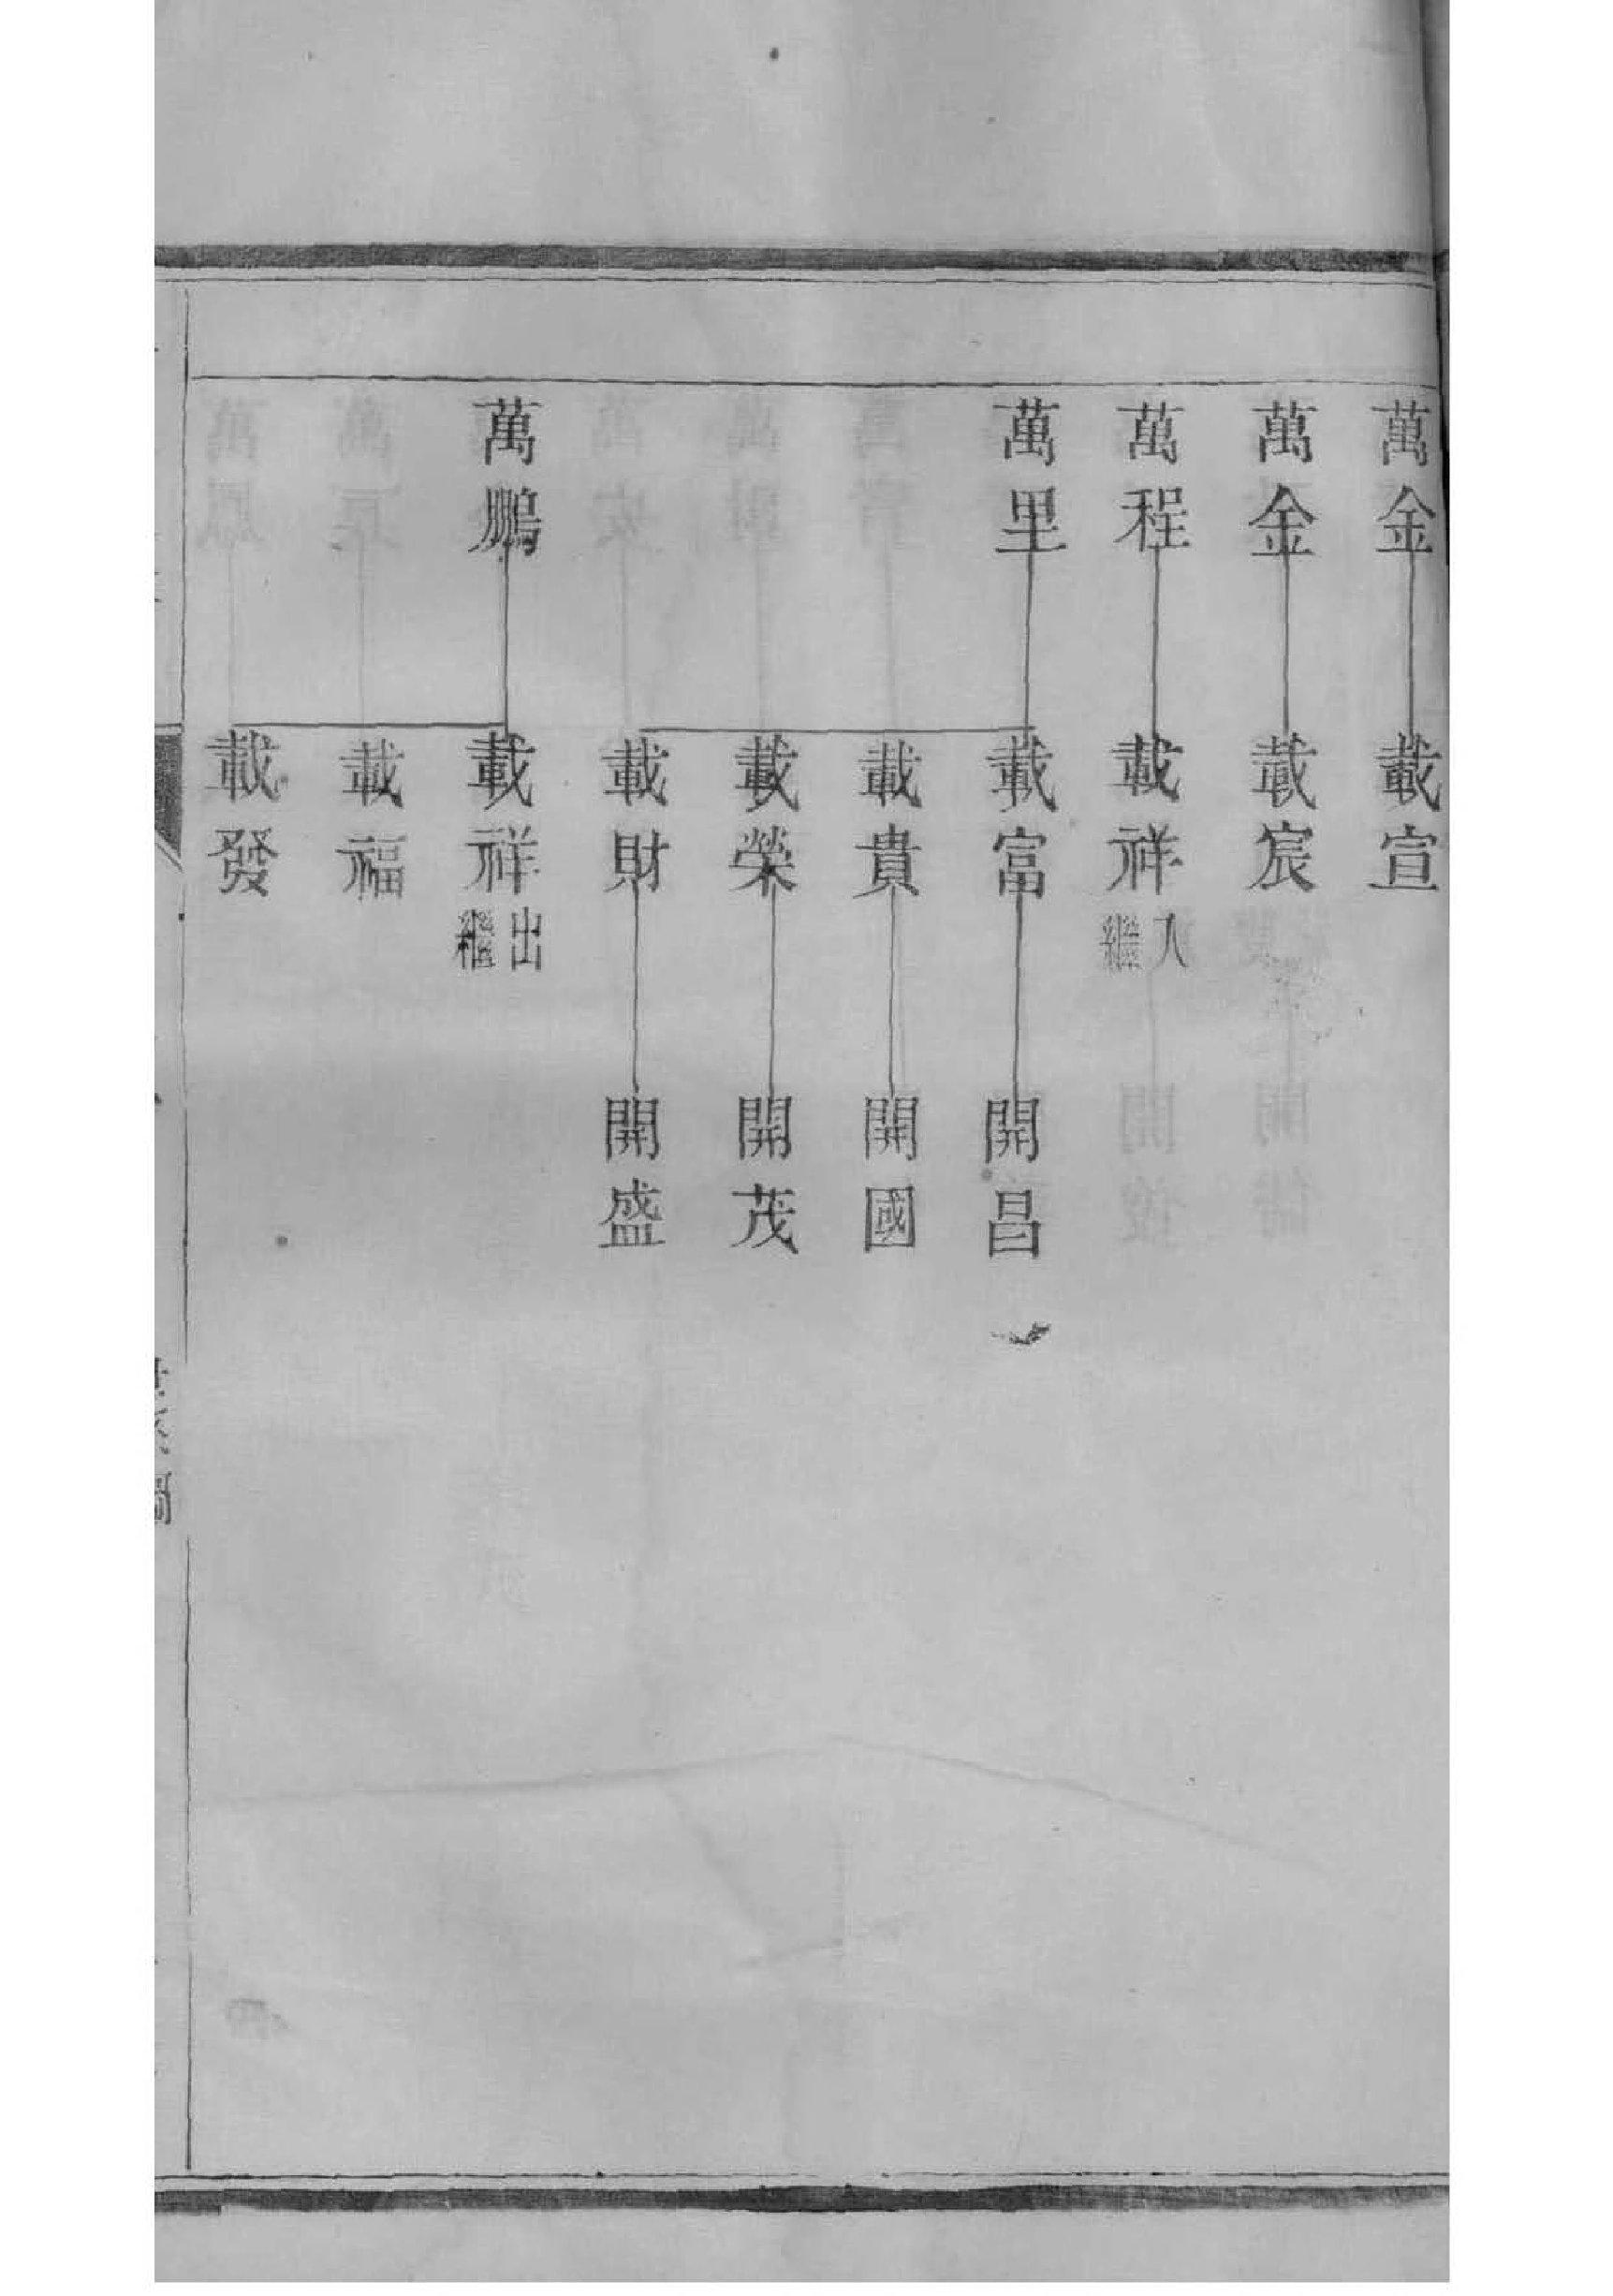 萬金
載宣
萬金
載宸
萬程
載祥
入繼
萬里
載富
開昌
載貴
開國
載榮
開茂
載財
開盛
萬鵬
載祥
出繼
載福
載發
世系圖